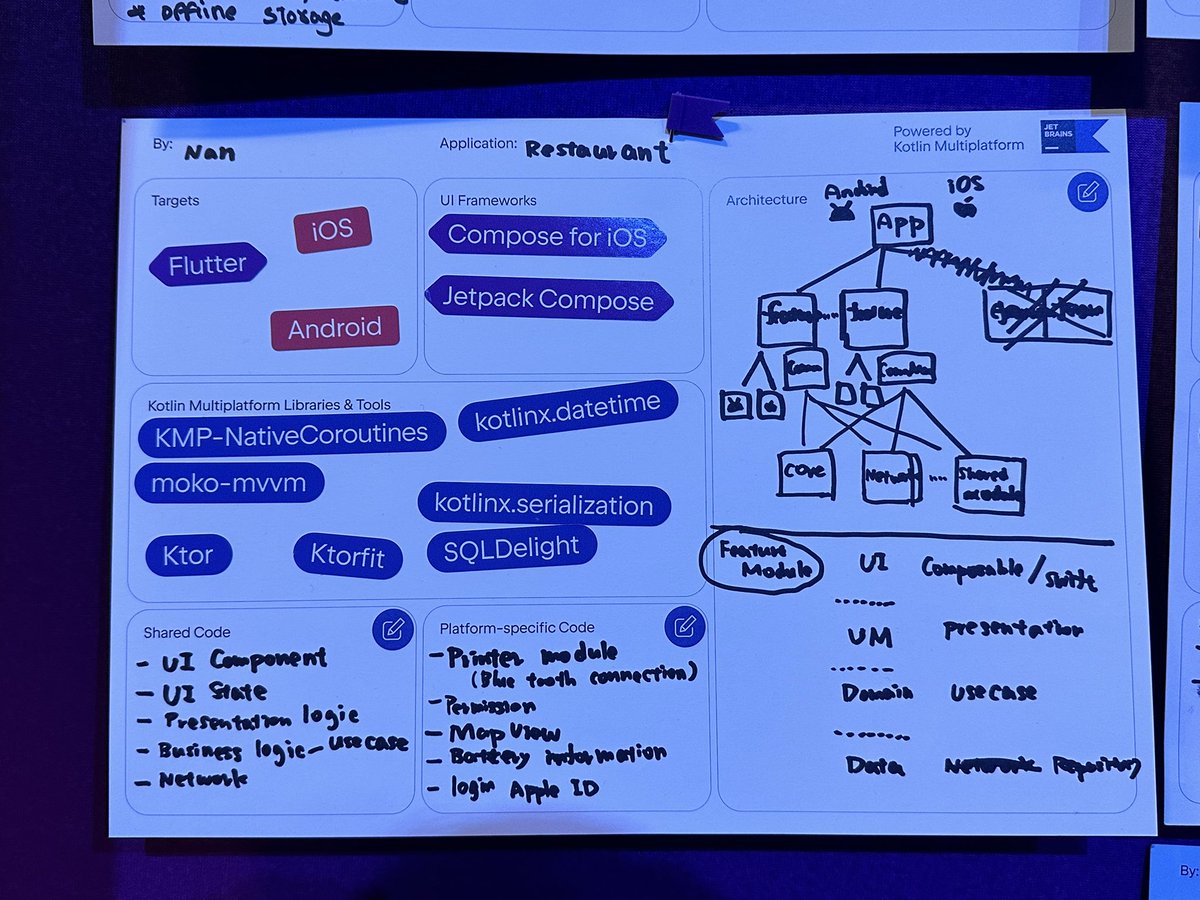 * offline storage
By: Nan
Application: Restaurant
Powered by
Kotlin Multiplatform
JET
BRAINS
Targets
iOS
Flutter
Android
UI Frameworks
Compose for iOS
Jetpack Compose
Kotlin Multiplatform Libraries & Tools
KMP-NativeCoroutines
kotlinx.datetime
moko-mvvm
kotlinx.serialization
Ktor
Ktorfit
SQLDelight
Shared Code
- UI Component
- UI State
- Presentation logic
- Business logic - usecase
- Network
Platform-specific Code
- Printer module
(Blue tooth connection)
- Permission
- Map View
- Battery information
- login Apple ID
Architecture
Android
iOS
App
...
Core
Network
...
Shared
module
Feature
Module
UI
Composable / Swift
VM
presentation
Domain
usecase
Data
Repository
By: